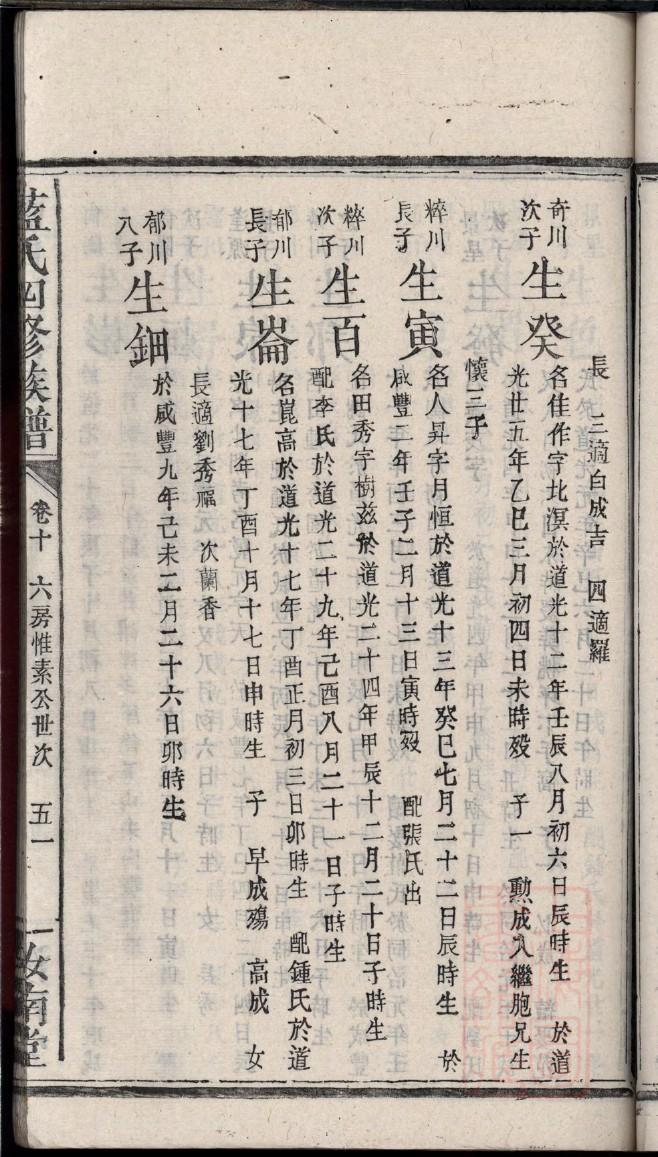 長 三適白成吉 四適羅
奇川
次子
生癸
名佳作字北溟於道光十二年壬辰八月初六日辰時生 於道
光廿五年乙巳三月初四日未時殁 子一 勲成入繼胞兄生
懷三子
粹川
長子
生寅
名人昇字月恒於道光十三年癸巳七月二十二日辰時生 於
咸豐二年壬子二月十三日寅時殁 配張氏出
粹川
次子
生百
名田秀字樹兹於道光二十四年甲辰十二月二十日子時生
配李氏於道光二十九年己酉八月二十一日子時生
郁川
長子
生崙
名崑高於道光十七年丁酉正月初三日卯時生 配鍾氏於道
光十七年丁酉十月十七日申時生 子 早成殤 高成 女
長適劉秀福 次蘭香
郁川
八子
生鈿
於咸豐九年己未二月二十六日卯時生
藍氏四修族譜
卷十 六房惟素公世次 五一
汝南堂